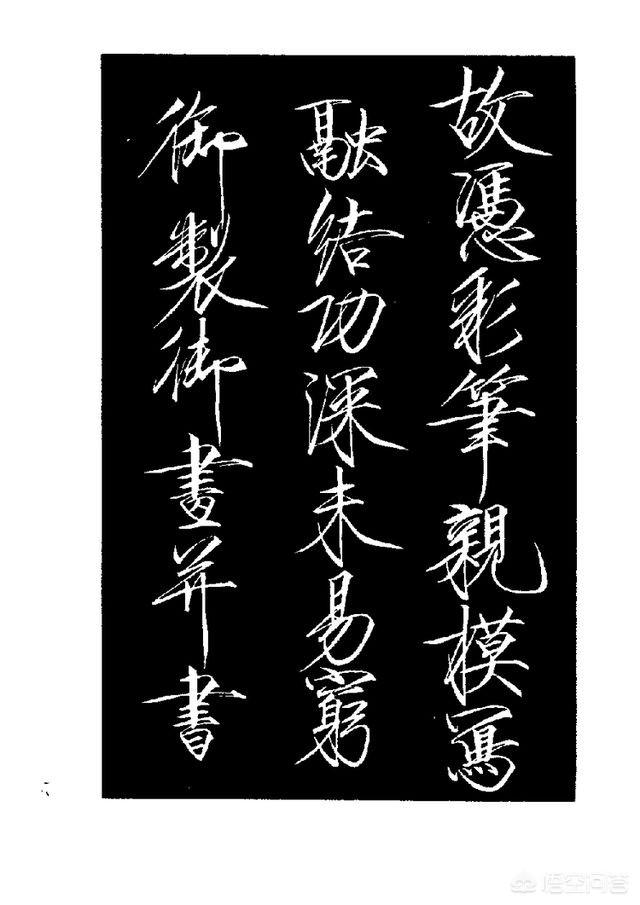 故憑彩筆親模寫
融結功深未易窮
御製御畫并書
六
悟空问答